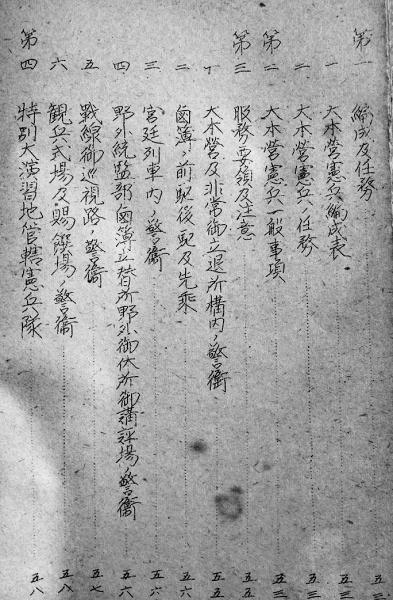 第一 編成及任務 五三
一 大本營憲兵編成表 五三
二 大本營憲兵ノ任務 五三
第二 大本營憲兵一般事項 五三
第三 服務要領及注意 五五
一 大本營及非常御立退所構内ノ警衞 五五
二 鹵簿ノ前駈後駈及先乘 五六
三 宮廷列車内ノ警衞 五六
四 野外統監部鹵簿立替所野外御休所御講評場ノ警衞 五六
五 戰線御巡視路ノ警衞 五七
六 観兵式場及賜饌場ノ警衞 五八
第四 特別大演習地管轄憲兵隊 五八